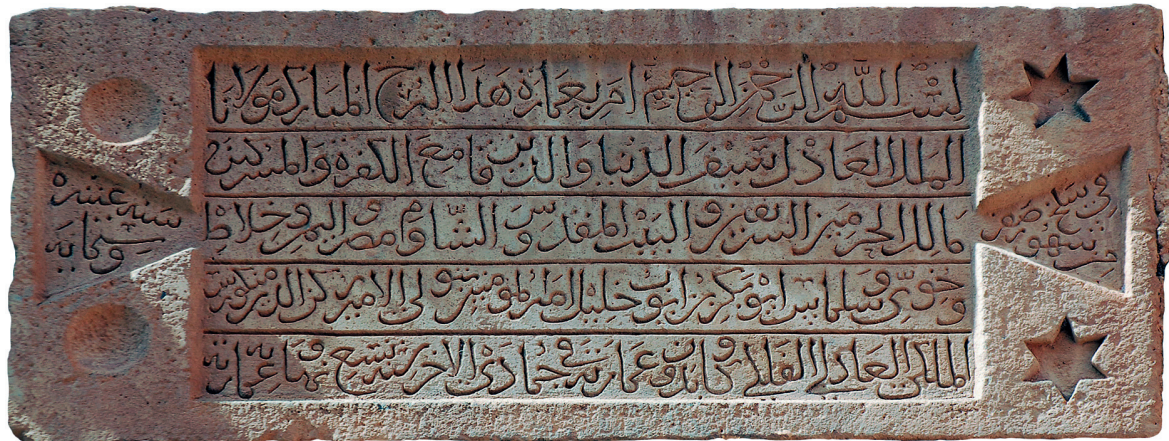 بسم الله الرحمن الرحيم امر بعمارة هذا البرج المبارك مولانا
الملك العادل سيف الدنيا والدين قامع الكفرة والمشركين
مالك الحرمين الشريفين و البيت المقدس و الشام و مصر واليمن وخلاط
وخوي وسلماس ابو بكر بن ايوب خليل امير المؤمنين بتولي الامير ركن الدين منكورس
الملكي العادلي الفلكي وكان بدو عمارته في جمادى الاخر سنة تسع ونهاية عمارته
في سلخ صفر
من شهور
سنة عشرة
وستمايه